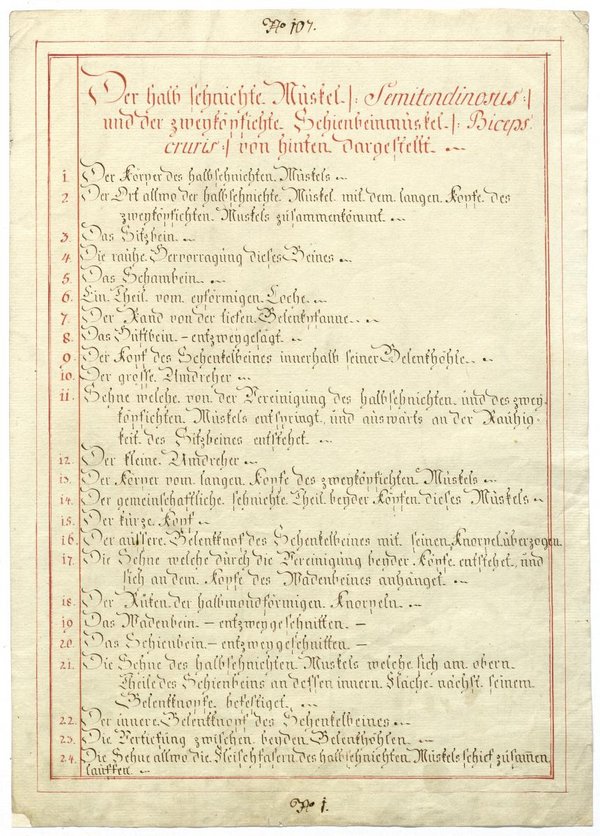 No 107.
Der halb sehnichte Muskel /: Semitendinosus :/
und der zweyköpfichte Schienbeinmuskel /: Biceps
cruris :/ von hinten dargestellt.
1 Der Körper des halbsehnichten Muskels
2 Der Ort allwo der halbsehnichte Muskel mit dem langen Kopfe des
zweyköpfichten Muskels zusammenkömmt.
3. Das Sitzbein.
4. Die rauhe Hervorragung dieses Beines
5. Das Schambein.
6. Ein Theil vom eyförmigen Loche.
7. Der Rand von der tiefen Gelenkpfanne
8. Das Hüftbein – entzweygesägt
9. Der Kopf des Schenkelbeines innerhalb seiner Gelenkhöhle.
10. Der grosse Umdreher
11. Sehne welche von der Vereinigung des halbsehnichten und des zwey-
köpfichten Muskels entspringt und auswärts an der Rauhig-
keit des Sitzbeines entstehet.
12. Der kleine Umdreher
13. Der Körper vom langen Kopfe des zweyköpfichten Muskels
14. Der gemeinschaftliche sehnichte Theil beyder Köpfen dieses Muskels
15. Der kurze Kopf
16. Der äussere Gelenkknopf des Schenkelbeines mit seinen Knorpel überzogen
17. Die Sehne welche durch die Vereinigung beyder Köpfe entstehet, und
sich an dem Kopfe des Wadenbeines anhänget.
18. Der Rüken der halbmondförmigen Knorpeln.
19 Das Wadenbein – entzweygeschnitten –
20. Das Schienbein – entzweygeschnitten –
21. Die Sehne des halbsehnichten Muskels welche sich am obern
Theile des Schienbeins an dessen innern Fläche nächst seinem
Gelenkknopfe befestiget.
22. Der innere Gelenkknopf des Schenkelbeines
23. Die Vertiefung zwischen beyden Gelenkhöhlen
24. Die Sehne allwo die Fleischfasern des halbsehnichten Muskels schief zusam̅en
lauffen.
No 1.